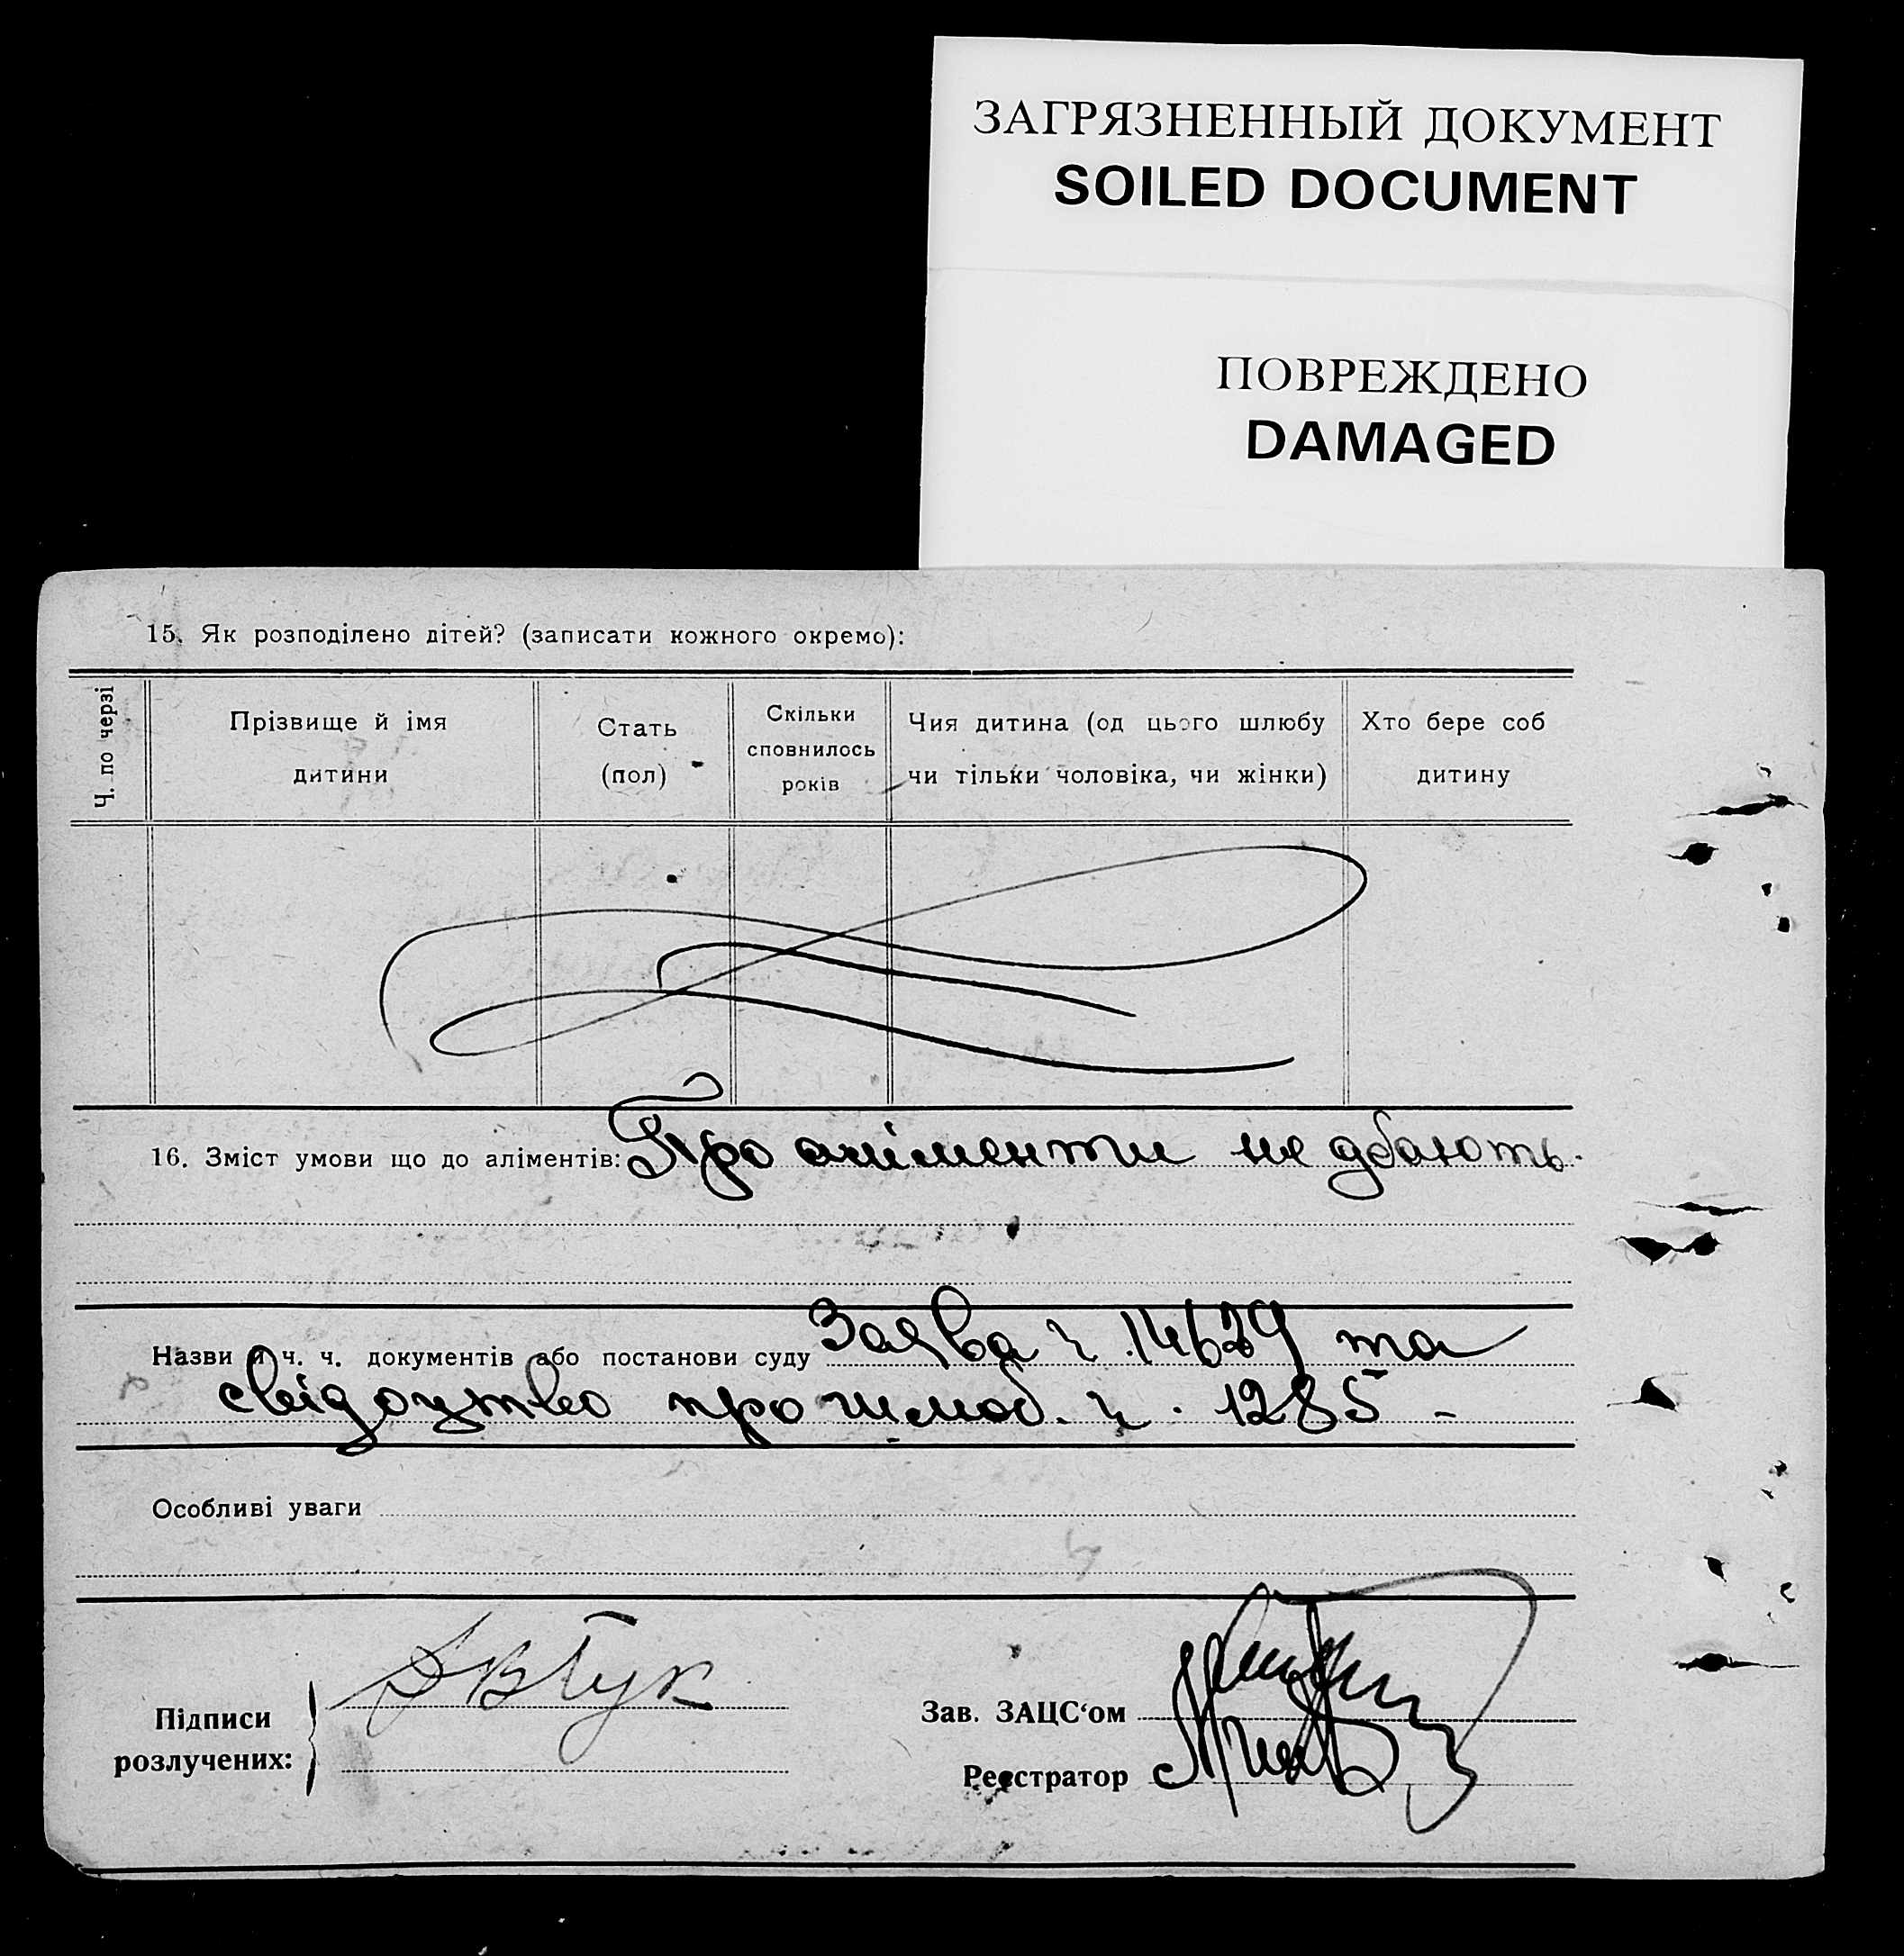 ЗАГРЯЗНЕННЫЙ ДОКУМЕНТ
SOILED DOCUMENT
ПОВРЕЖДЕНО
DAMAGED
15. Як розподілено дітей? (записати кожного окремо):
Ч. по черзі
Прізвище й імя
дитини
Стать
(пол)
Скільки
сповнилось
років
Чия дитина (од цього шлюбу
чи тільки чоловіка, чи жінки)
Хто бере соб
дитину
16. Зміст умови що до аліментів: Про аліменти не дбають.
Назви й ч. ч. документів або постанови суду Заява ч. 14629 та
свідоцтво про шлюб. ч. 1285 -
Особливі уваги
Підписи
розлучених:
Зав. ЗАЦС‘ом
Реєстратор